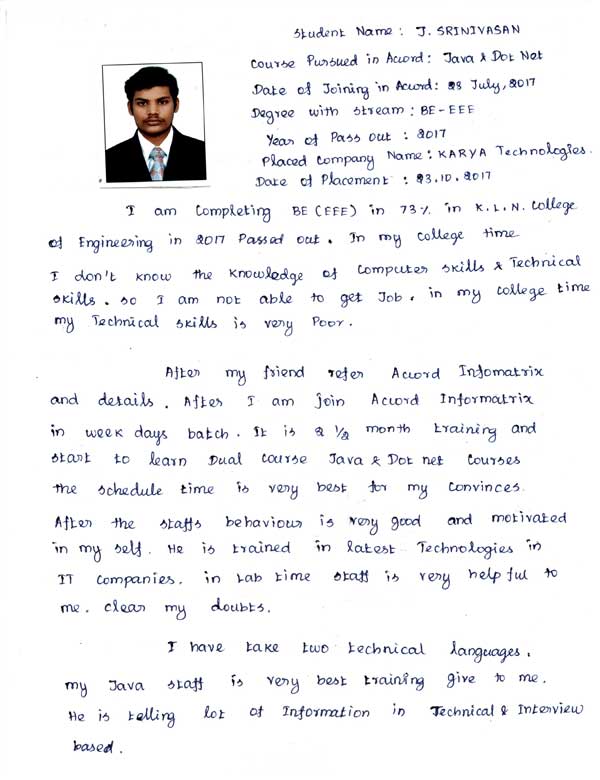 Student Name : J. SRINIVASAN
Course Pursued in Accord : Java & Dot Net
Date of Joining in Accord : 28 July, 2017
Degree with stream : BE-EEE
Year of Pass out : 2017
Placed Company Name : KARYA Technologies.
Date of Placement : 23.10.2017
I am Completing BE (EEE) in 73% in K.L.N. College
of Engineering in 2017 Passed out. In my college time
I don't know the knowledge of Computer skills & Technical
skills. so I am not able to get Job. in my college time
my Technical skills is very Poor.
After my friend refer Accord Infomatrix
and details. After I am join Accord Informatrix
in week days batch. It is 2 1/2 month training and
start to learn Dual course Java & Dot net courses
the schedule time is very best for my convinces.
After the staffs behaviour is very good and motivated
in my self. He is trained in latest Technologies in
IT companies. in Lab time staff is very helpful to
me. clear my doubts.
I have take two technical languages.
my Java staff is very best training give to me.
He is telling lot of Information in Technical & Interview
based.